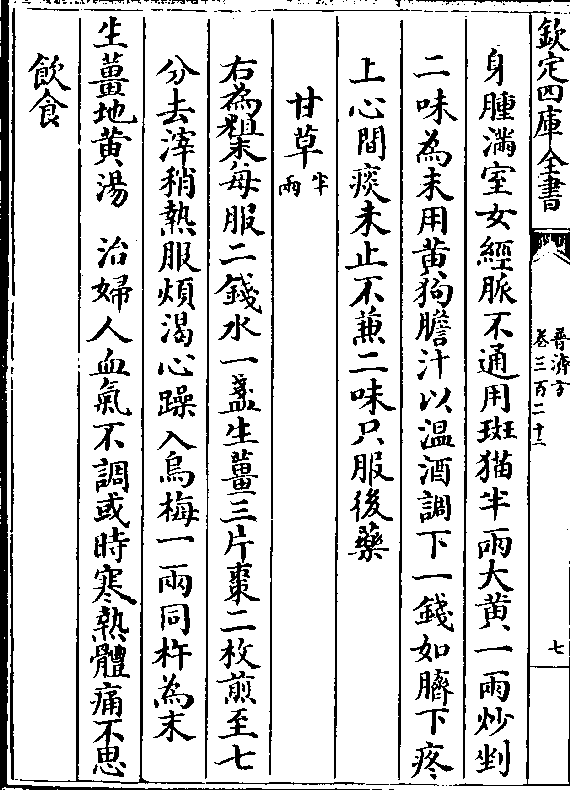 欽定四庫全書
普濟方
卷三百二十二
七
身腫滿室女經脈不通用斑猫半兩大黄一兩炒剉
二味為末用黄狗膽汁以温酒調下一錢如臍下疼
上心間痰未止不兼二味只服後藥
甘草半兩
右為粗末每服二錢水一盞生薑三片棗二枚煎至七
分去滓稍熱服煩渴心躁入烏梅一兩同杵為末
生薑地黄湯　治婦人血氣不調或時寒熱體痛不思
飲食